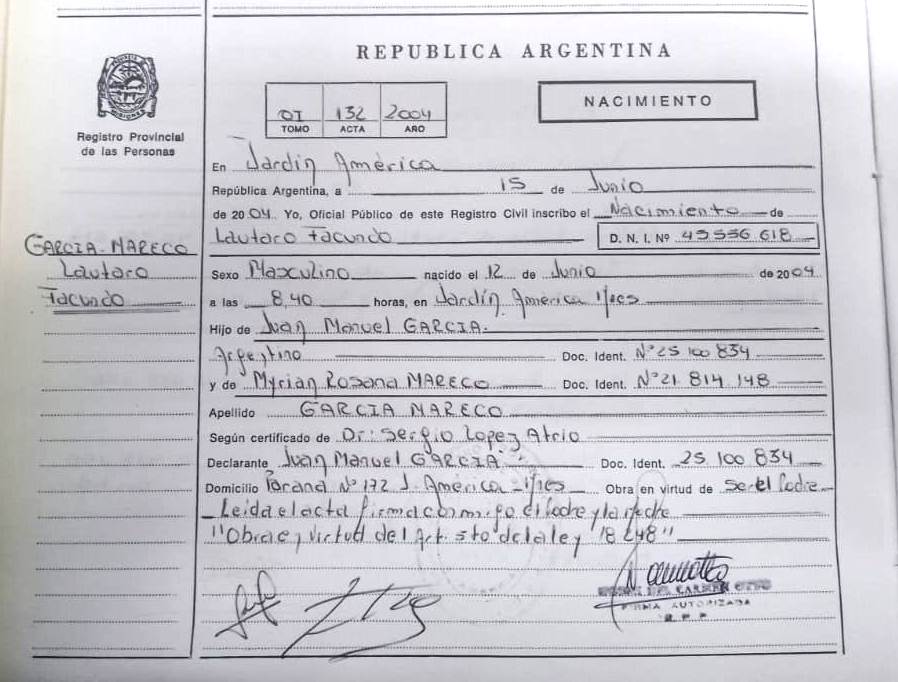 REPUBLICA ARGENTINA
NACIMIENTO
01 132 2004
TOMO ACTA AÑO
MISIONES
Registro Provincial
de las Personas
GARCIA MARECO
Lautaro
Facundo
En Jardín América
República Argentina, a 15 de Junio
de 2004. Yo, Oficial Público de este Registro Civil inscribo el Nacimiento de
Lautaro Facundo D. N. I. Nº 45 556 618
Sexo Masculino nacido el 12 de Junio de 2004
a las 8,40 horas, en Jardín América
Hijo de Juan Manuel GARCIA.
Argentino Doc. Ident. Nº 25 100 834
y de Myrian Rosana MARECO Doc. Ident. Nº 21 814 148
Apellido GARCIA MARECO
Según certificado de Dr: Sergio Lopez
Declarante Juan Manuel GARCIA Doc. Ident. 25 100 834
Domicilio Paraná Nº 172 J. América Obra en virtud de Ser el Padre
Leida el acta firma conmigo el Padre y la Madre
"Obra en virtud del Art. 5to de la ley 18 248"
DEL CARMEN
FIRMA AUTORIZADA
R.P.P